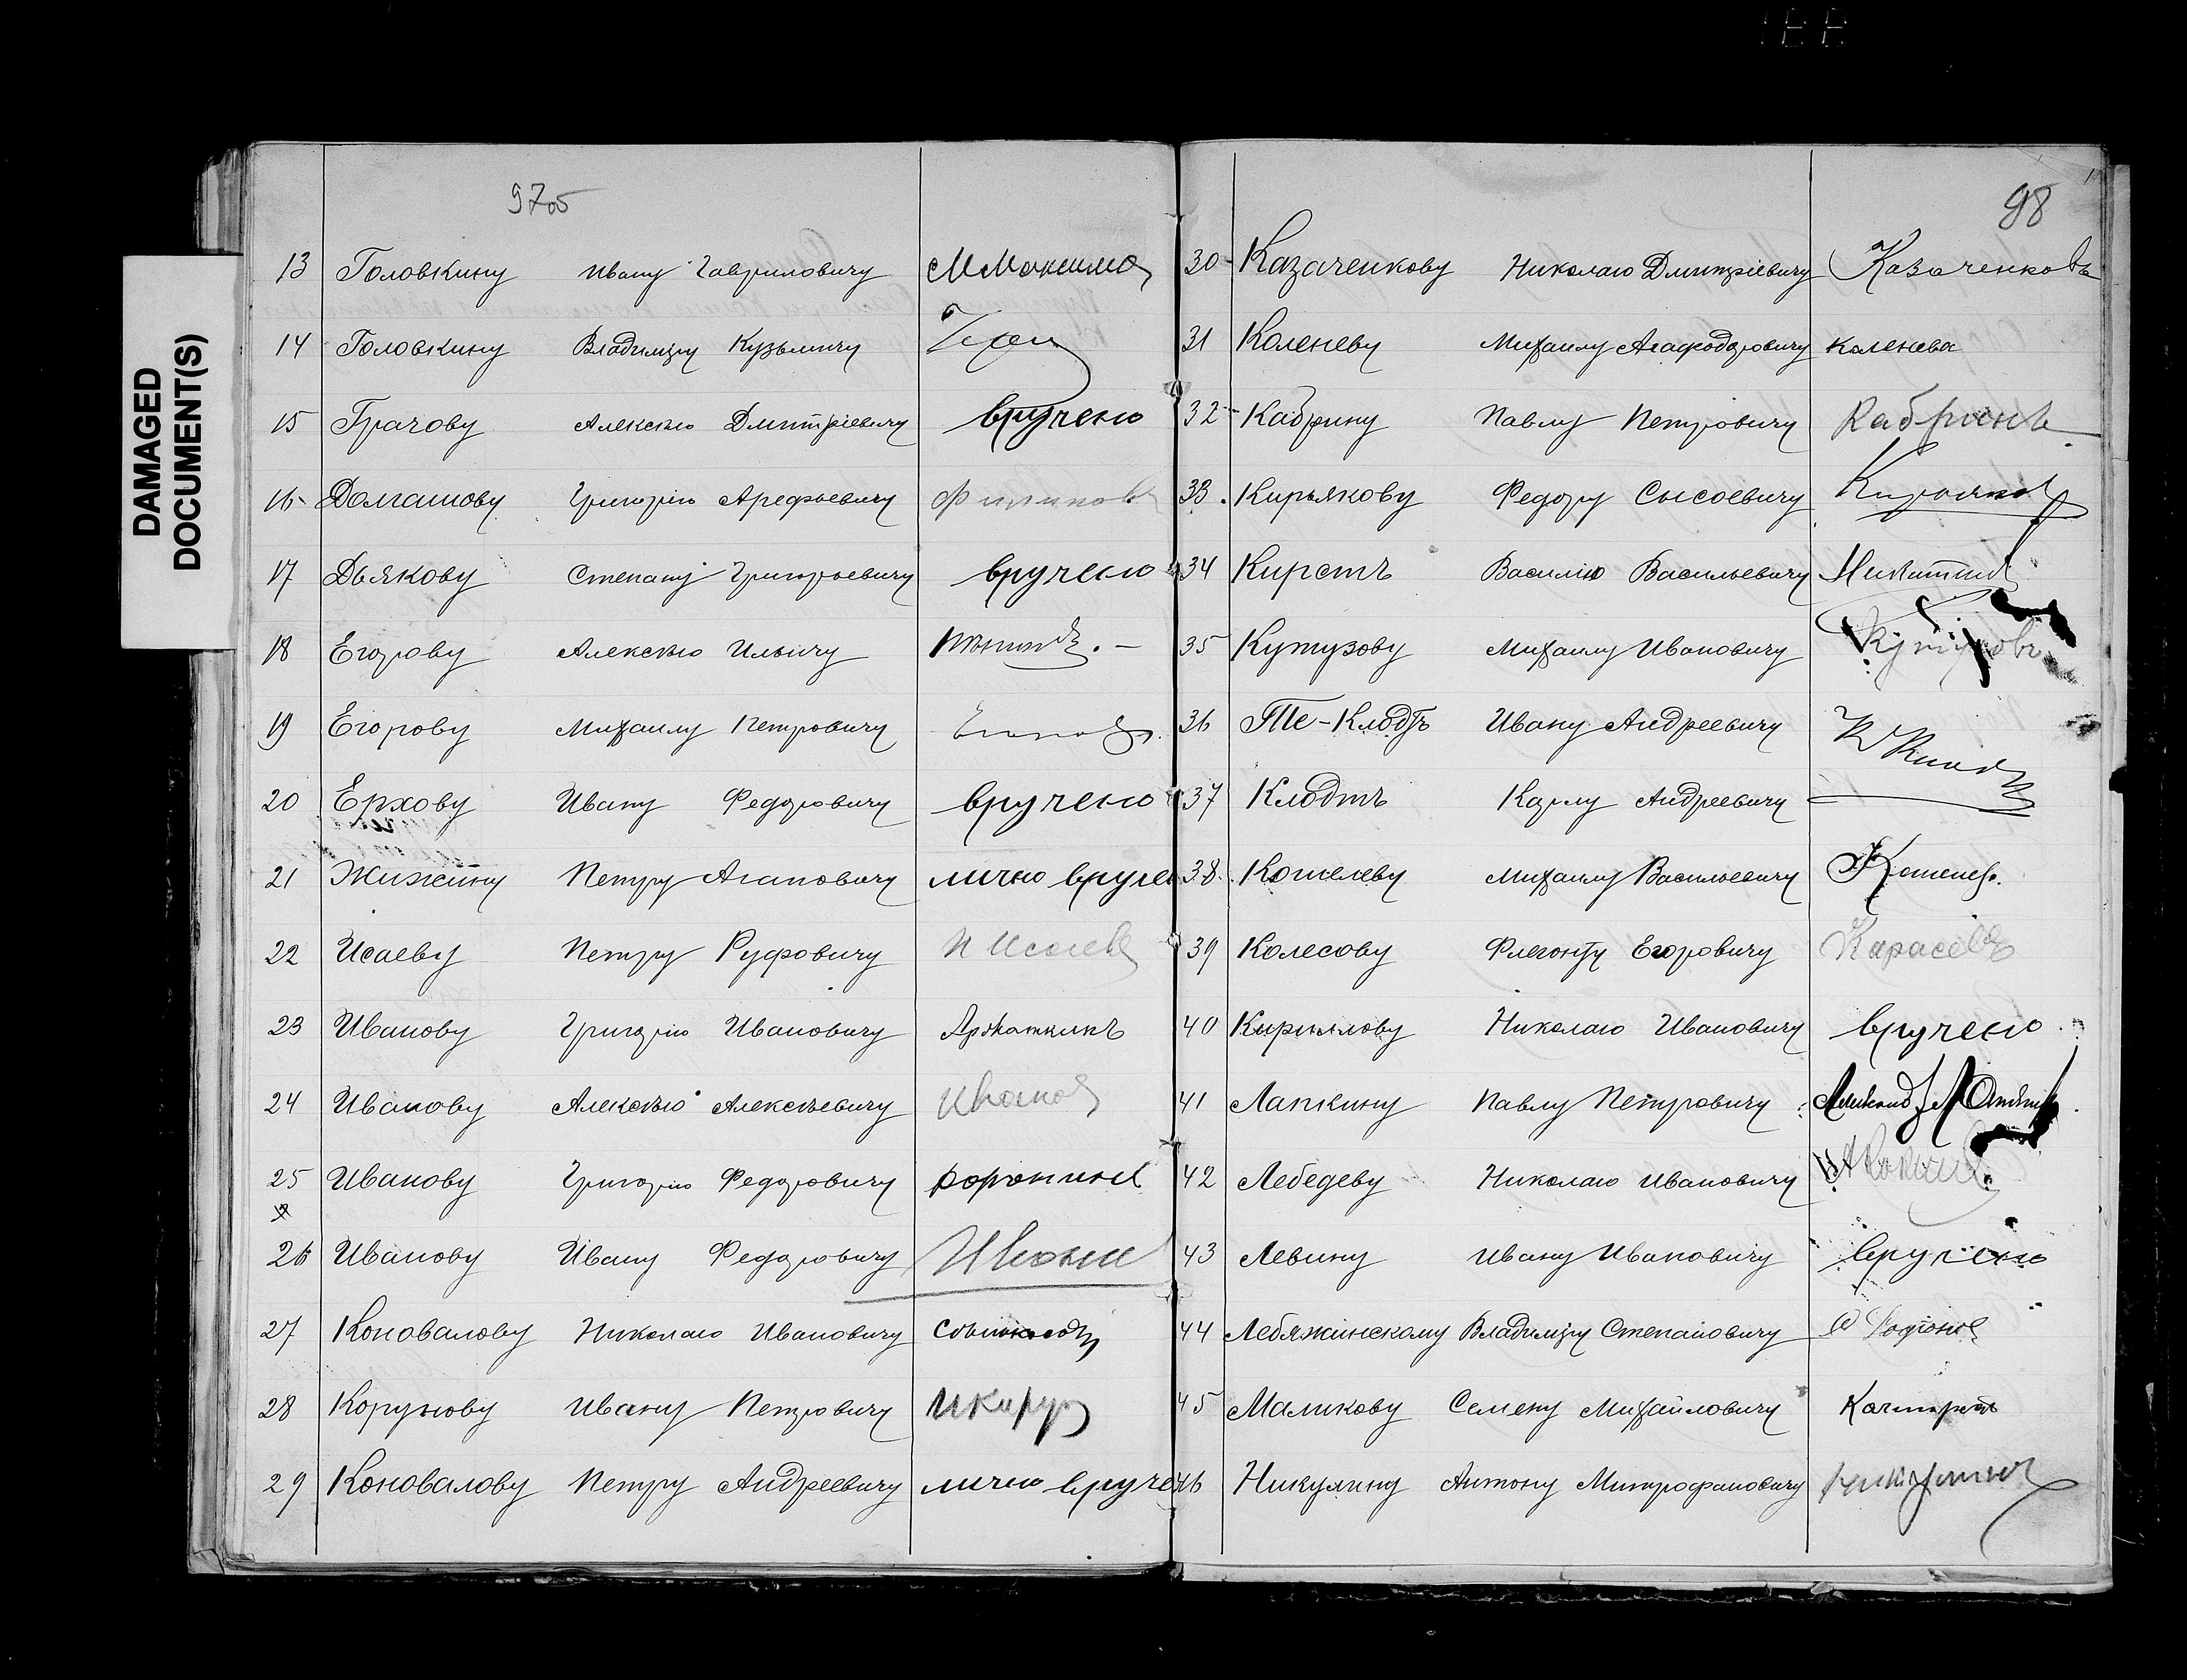 DAMAGED
DOCUMENT(S)
97об
13 Головкину Ивану Гавриловичу
14 Головкину Владиміру Кузьмичу
15 Грачову Алексѣю Дмитріевичу вручено
16 Долгашову Григорію Арефьевичу
17 Дьякову Степану Григорьевичу вручено
18 Егорову Алексѣю Ильичу
19 Егорову Михаилу Петровичу
20 Ерхову Ивану Федоровичу вручено
21 Жижину Петру Агаповичу лично вруче
22 Исаеву Петру Руфовичу П Исаевъ
23 Иванову Григорію Ивановичу Аржаткинъ
24 Иванову Алексѣю Алексѣевичу Иванов
25 Иванову Григорію Федоровичу
26 Иванову Ивану Федоровичу
27 Коновалову Николаю Ивановичу
28 Корунову Ивану Петровичу
29 Коновалову Петру Андреевичу лично вруче
98
30 Казаченкову Николаю Дмитріевичу Казаченковъ
31 Коленеву Михаилу Агафодоровичу Коленева
32 Кабрину Павлу Петровичу Кабринъ
33. Кирьякову Федору Сысоевичу Кирьяков
34 Кирстъ Василію Васильевичу Никитин
35 Кутузову Михаилу Ивановичу Кутузовъ
36 Те-Клодтъ Ивану Андреевичу
37 Клодтъ Карлу Андреевичу
38. Кошелеву Михаилу Васильевичу Кошелев
39 Колесову Флегонту Егоровичу Карасевъ
40 Кириллову Николаю Ивановичу вручено
41 Лапкину Павлу Петровичу
42 Лебедеву Николаю Ивановичу
43 Левину Ивану Ивановичу вручено
44 Лебяжинскому Владиміру Степановичу
45 Маликову Семену Михайловичу
46 Никулину Антону Митрофановичу Никулин